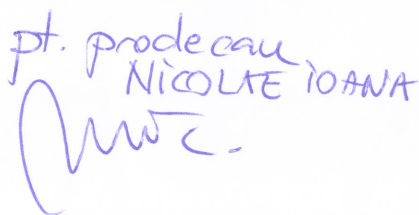 pt. prodecan
NICOLAE IOANA